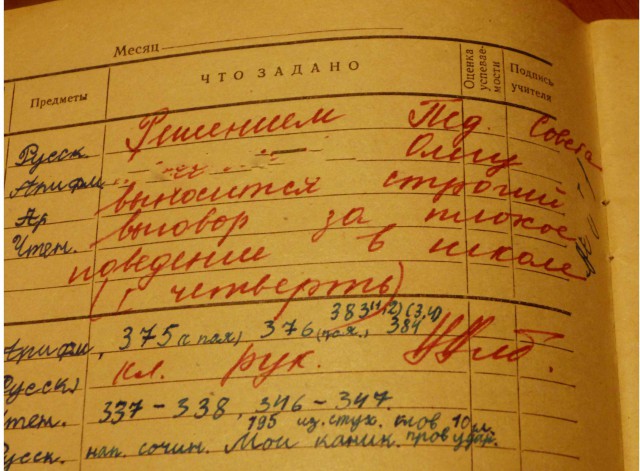 Месяц
Предметы
ЧТО ЗАДАНО
Оценка успеваемости
Подпись учителя
Русск. Решением Пед. Совета
Арифм. Олегу
Ар выносится строгий
Чтен. выговор за плохое
поведение в школе
(I четверть)
383 (1,2) (3,4)
Арифм. 375 (с поя.) 376 (поя.) 384
Русск кл. рук.
Чтен. 337 – 338, 346 – 347.
195 из. стух. 10
Русск. нап. сочин. Мои каник. пров удар.